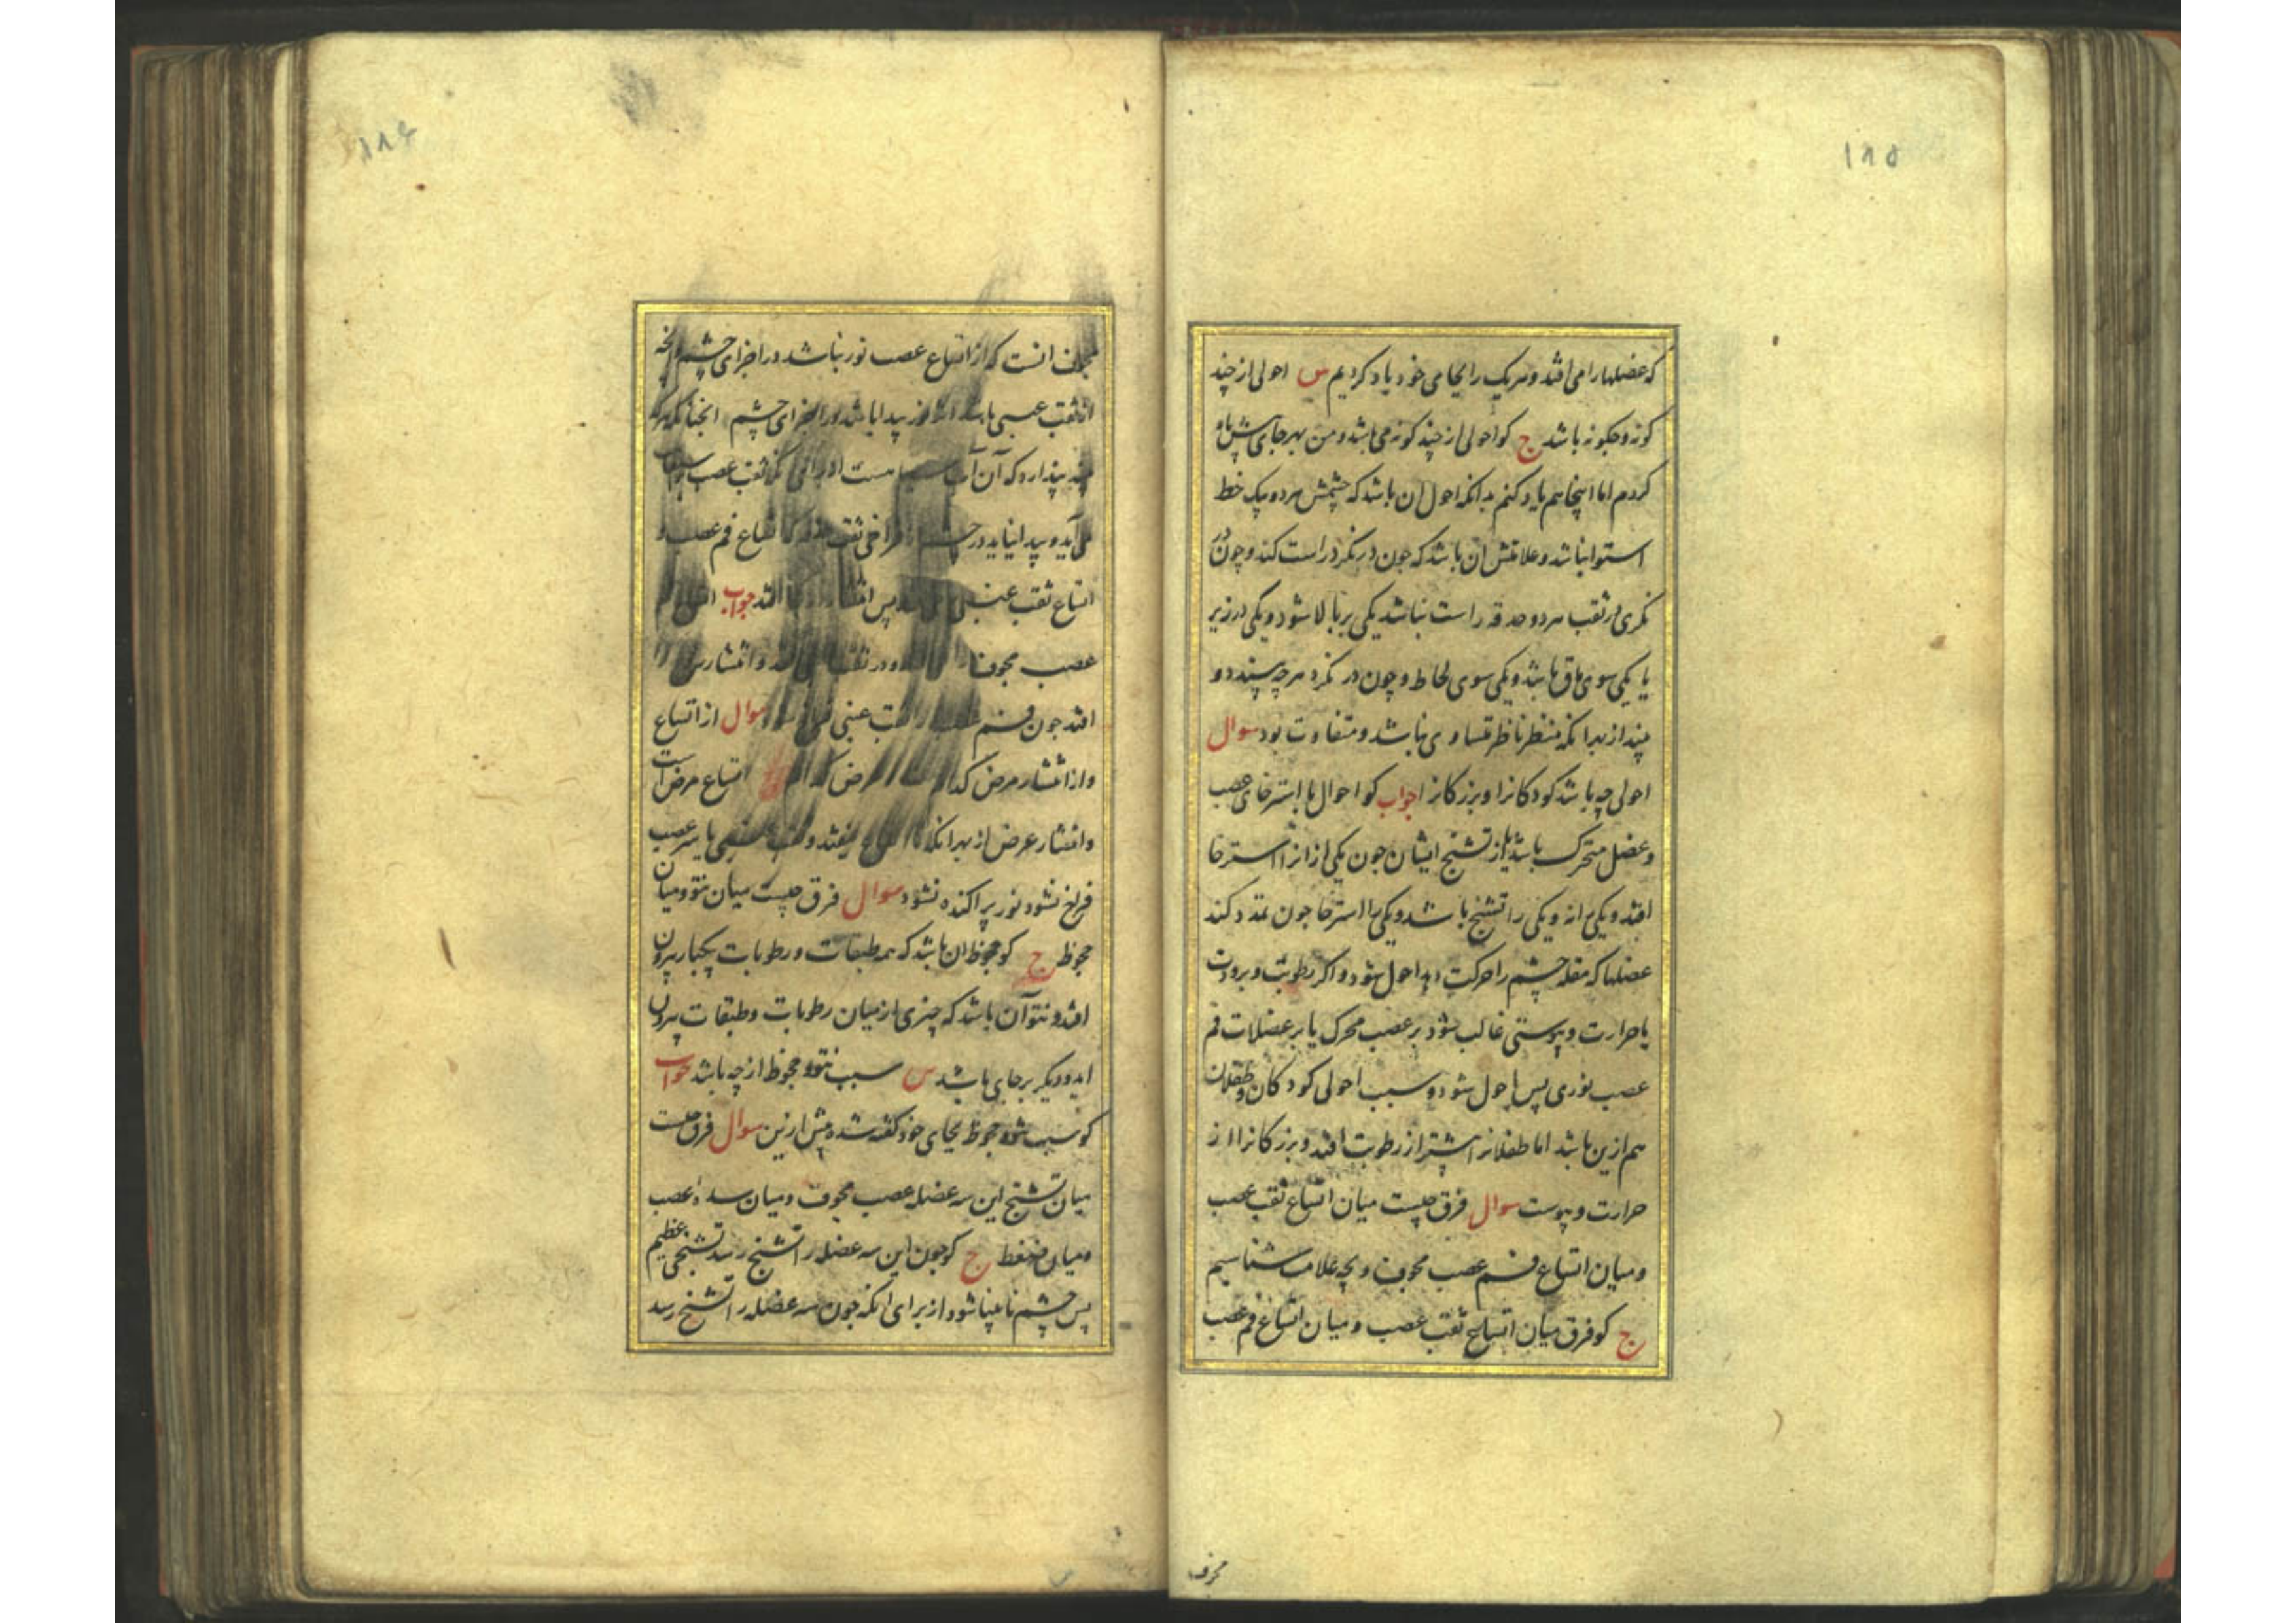 ۱۸۵
که عضلها را می افتد و هر یک را بجای خود یاد کردیم س احولی از چند
کونه و چکونه باشد ج کو احولی از چند کونه می باشد و من بهر جای پیش یاد
کردم اما اینجا هم یاد کنم بدانکه احول ان باشد که چشمش هر دو بیک خط
استوا نباشد و علامتش ان باشد که چون در نکرد راست کند و چون در
نکری ثقب هر دو حدقه راست نباشد یکی بر بالا شود و یکی در زیر
یا یکی سوی ماق باشد و یکی سوی لحاظ و چون در نکرد هر چه بیند دو
بیند از بهر انکه منظر ناظر متساوی نباشد و متفاوت بود سوال
احولی چه باشد کودکانرا و بزرکانرا جواب کو احوال یا استرخای عصب
و عضل متحرک باشد یا از تشنج ایشان چون یکی از انرا استرخا
افتد و یکی را نه و یکی را تشنج باشد و یکی را استرخا چون تمدد کند
عضلها که مقله چشم را حرکت دهد احول شود و اکر رطوبت و برودت
یا حرارت و یبوستی غالب شود بر عصب محرک یا بر عضلات فم
عصب نوری پس احول شود و سبب احولی کودکان و طفلان
هم ازین باشد اما طفلانرا بیشتر از رطوبت افتد و بزرکانرا از
حرارت و یبوست سوال فرق چیست میان اتساع ثقب عصب
و میان اتساع فم عصب مجوف و بچه علامت شناسیم
ج کو فرق میان اتساع ثقب عصب و میان اتساع فم عصب
مجوف
۱۸۶
مجوف انست که از اتساع عصب نور نباشد در اجزای چشم انچه
از ثقب عنبی باشد نور پیدا باشد در اجزای چشم انچنانکه هر که
بیند پندارد که آن آب است ثقب عصب
می آید و پیدا نیاید در چشم فراخی ثقب اتساع فم عصب و
اتساع ثقب عنبی پس انتشار افتد جواب اتساع
عصب مجوف را در ثقب و انتشار
افتد چون فم عصب ثقب عنبی سوال از اتساع
و از انتشار مرض کدام است عرض کدام اتساع مرض است
و انتشار عرض از بهر انکه تا اتساع نیفتد و ثقب عنبی یا سر عصب
فراخ نشود نور پراکنده نشود سوال فرق چیست میان نتوء و میان
جحوظ ج کو جحوظ ان باشد که همه طبقات و رطوبات یکبار بیرون
افتد و نتوء آن باشد که چیزی از میان رطوبات و طبقات بیرون
اید و دیکر بر جای باشد س سبب نتوء و جحوظ از چه باشد جواب
کو سبب نتوء جحوظ بجای خود کفته شده پیش ازین سوال فرق چیست
میان تشنج این سه عضله عصب مجوف و میان سده عصب
و میان ضغط ج کو چون این سه عضله را تشنج رسد تشنجی عظیم
پس چشم نابینا شود از برای انکه چون سه عضله را تشنج رسد